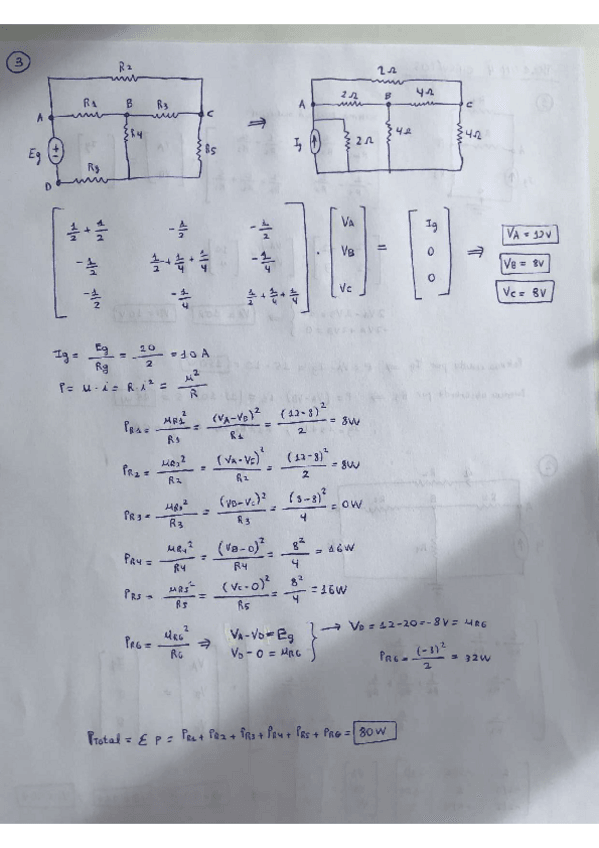 3
R2
R1 B R3
A C
R4
R5
Eg
Rg
D
⇒
2Ω
2Ω B 4Ω
A C
Ig 2Ω 4Ω 4Ω
[ 1/2 + 1/2 -1/2 -1/2 ] [ VA ] [ Ig ] VA = 12V
[ -1/2 1/2 + 1/4 + 1/4 -1/4 ] · [ VB ] = [ 0 ] ⇒ VB = 8V
[ -1/2 -1/4 1/2 + 1/4 + 1/4 ] [ VC ] [ 0 ] VC = 8V
Ig = Eg/Rg = 20/2 = 10A
P = u · i = R · i² = u²/R
PR1 = uR1²/R1 = (VA-VB)²/R1 = (12-8)²/2 = 8W
PR2 = uR2²/R2 = (VA-VC)²/R2 = (12-8)²/2 = 8W
PR3 = uR3²/R3 = (VB-VC)²/R3 = (8-8)²/4 = 0W
PR4 = uR4²/R4 = (VB-0)²/R4 = 8²/4 = 16W
PR5 = uR5²/R5 = (VC-0)²/R5 = 8²/4 = 16W
PRG = uRG²/RG ⇒ VA-VD = Eg → VD = 12-20 = -8V = uRG
VD-0 = uRG PRG = (-8)²/2 = 32W
PTotal = Σ P = PR1 + PR2 + PR3 + PR4 + PR5 + PRG = 80W